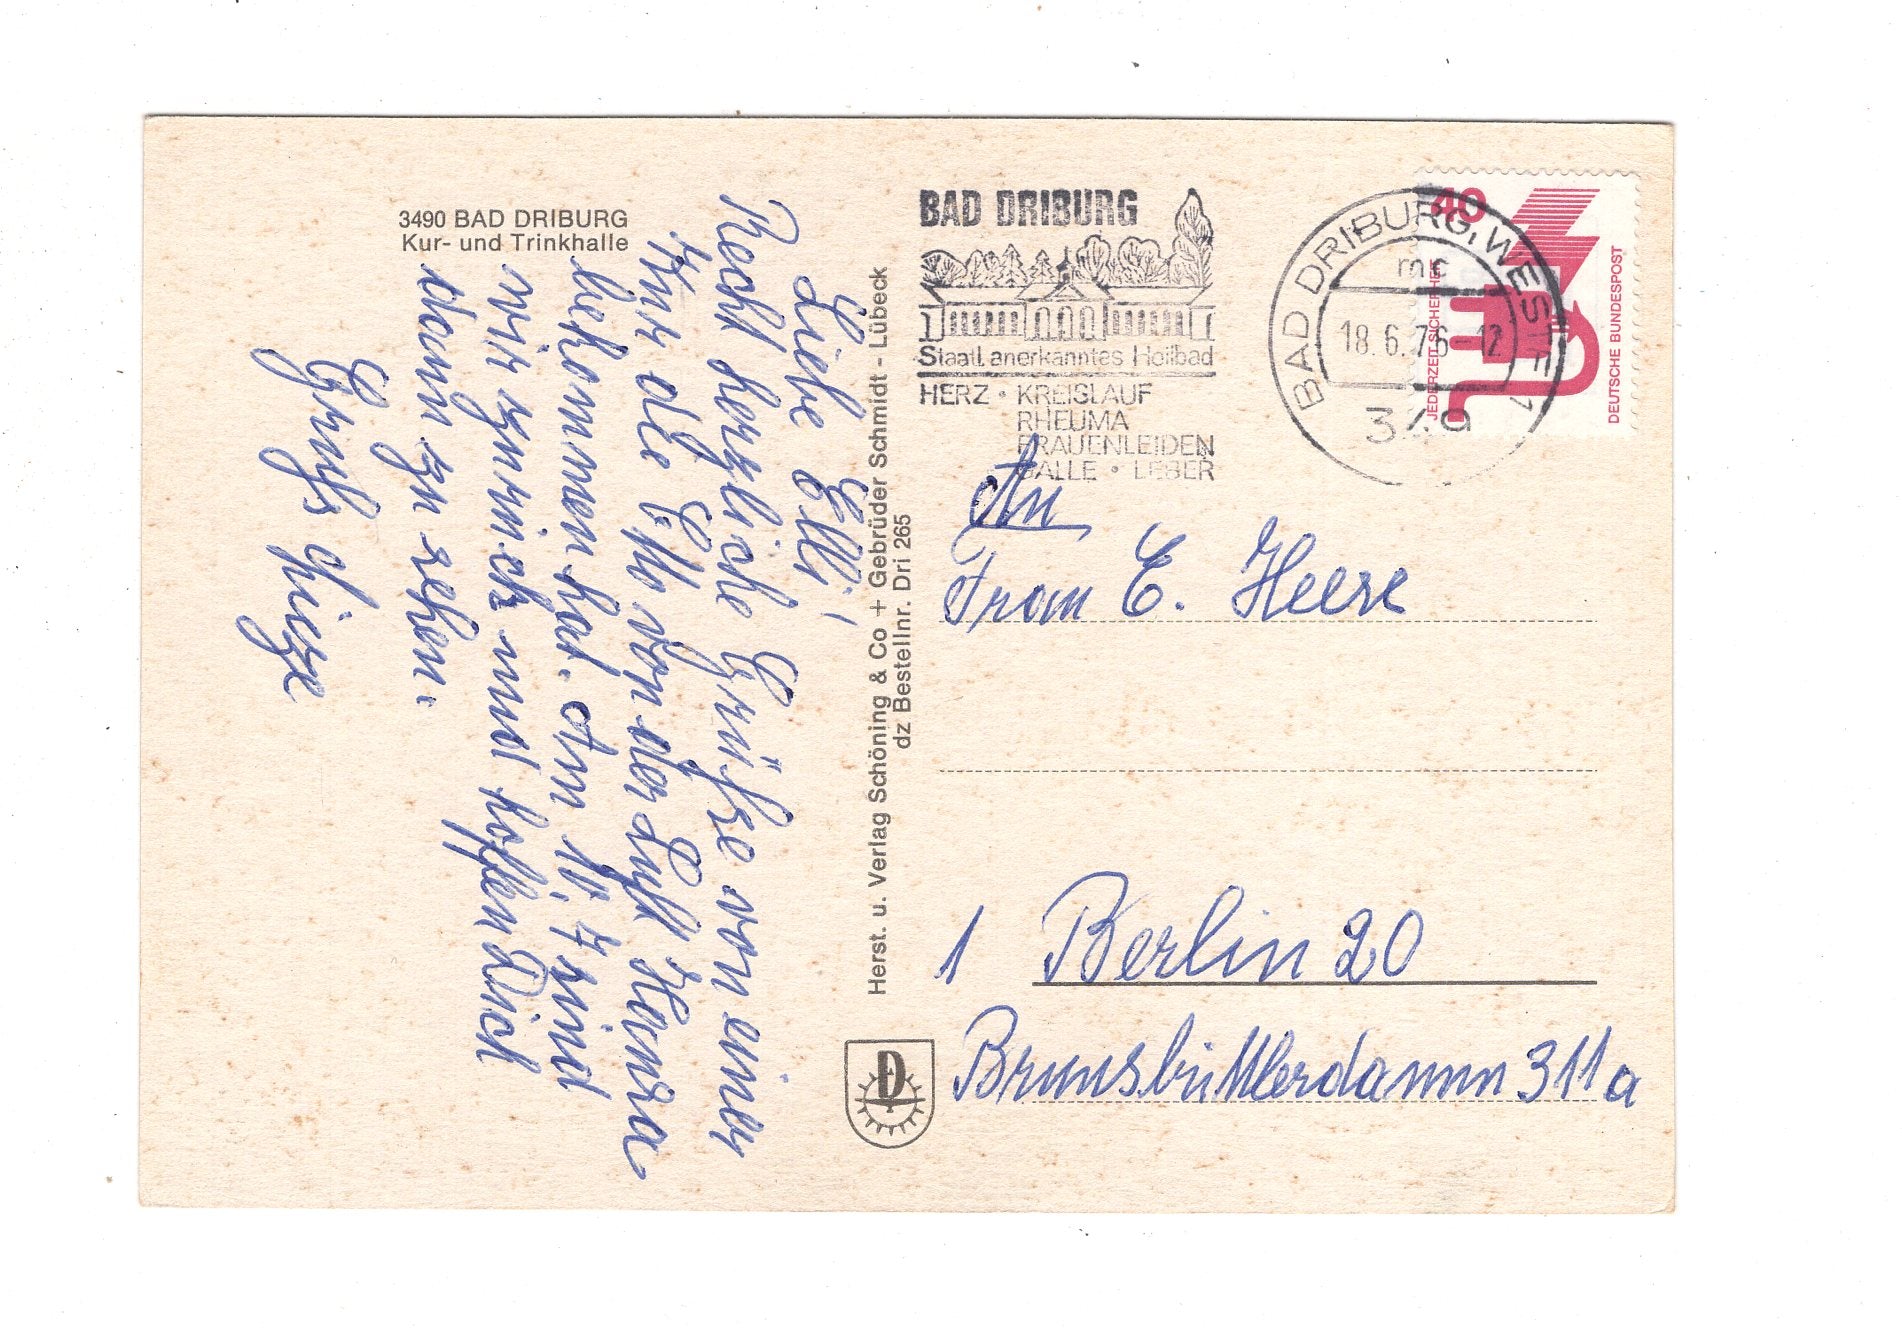 3490 BAD DRIBURG
Kur- und Trinkhalle
Liebe Elli!
Recht herzliche Grüße von einer
Kur die Otto von der Luft Hansa
bekommen hat. Am 10.7 sind
wir zurück und hoffen Dich
dann zu sehen.
Gruß
Herst. u. Verlag Schöning & Co + Gebrüder Schmidt - Lübeck
dz Bestellnr. Dri 265
BAD DRIBURG
Staatl. anerkanntes Heilbad
HERZ · KREISLAUF
RHEUMA
FRAUENLEIDEN
GALLE · LEBER
BAD DRIBURG, WESTF 1
mc
18.6.76-12
349
40
JEDERZEIT SICHERHEIT
DEUTSCHE BUNDESPOST
An
Frau E. Heese
1 Berlin 20
Brunsbüttlerdamm 311a